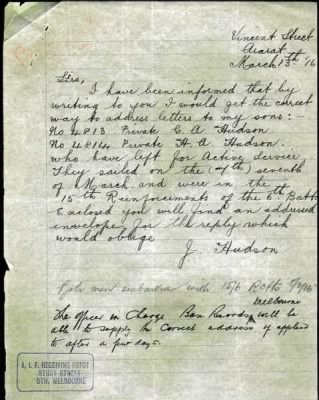 Vincent Street
Ararat
March 13th '16
Sirs,
I have been informed that by
writing to you I would get the correct
way to address letters to my sons:-
No 4813 Private C. A Hudson
No 4814 Private H. A. Hudson.
who have left for Active Service
They sailed on the (7th) seventh
of March and were in the
15th Reinforcements of the 6th Battn
Enclosed you will find an addressed
envelope for the reply which
would oblige
J. Hudson
men embarked with 15/6 Rcfts 7/3/16
Melbourne
The officer in charge Base Records will be
able to supply the correct address if applied
to after a few days.
A. I. F. RECEIVING DEPOT
STURT STREET
STH. MELBOURNE